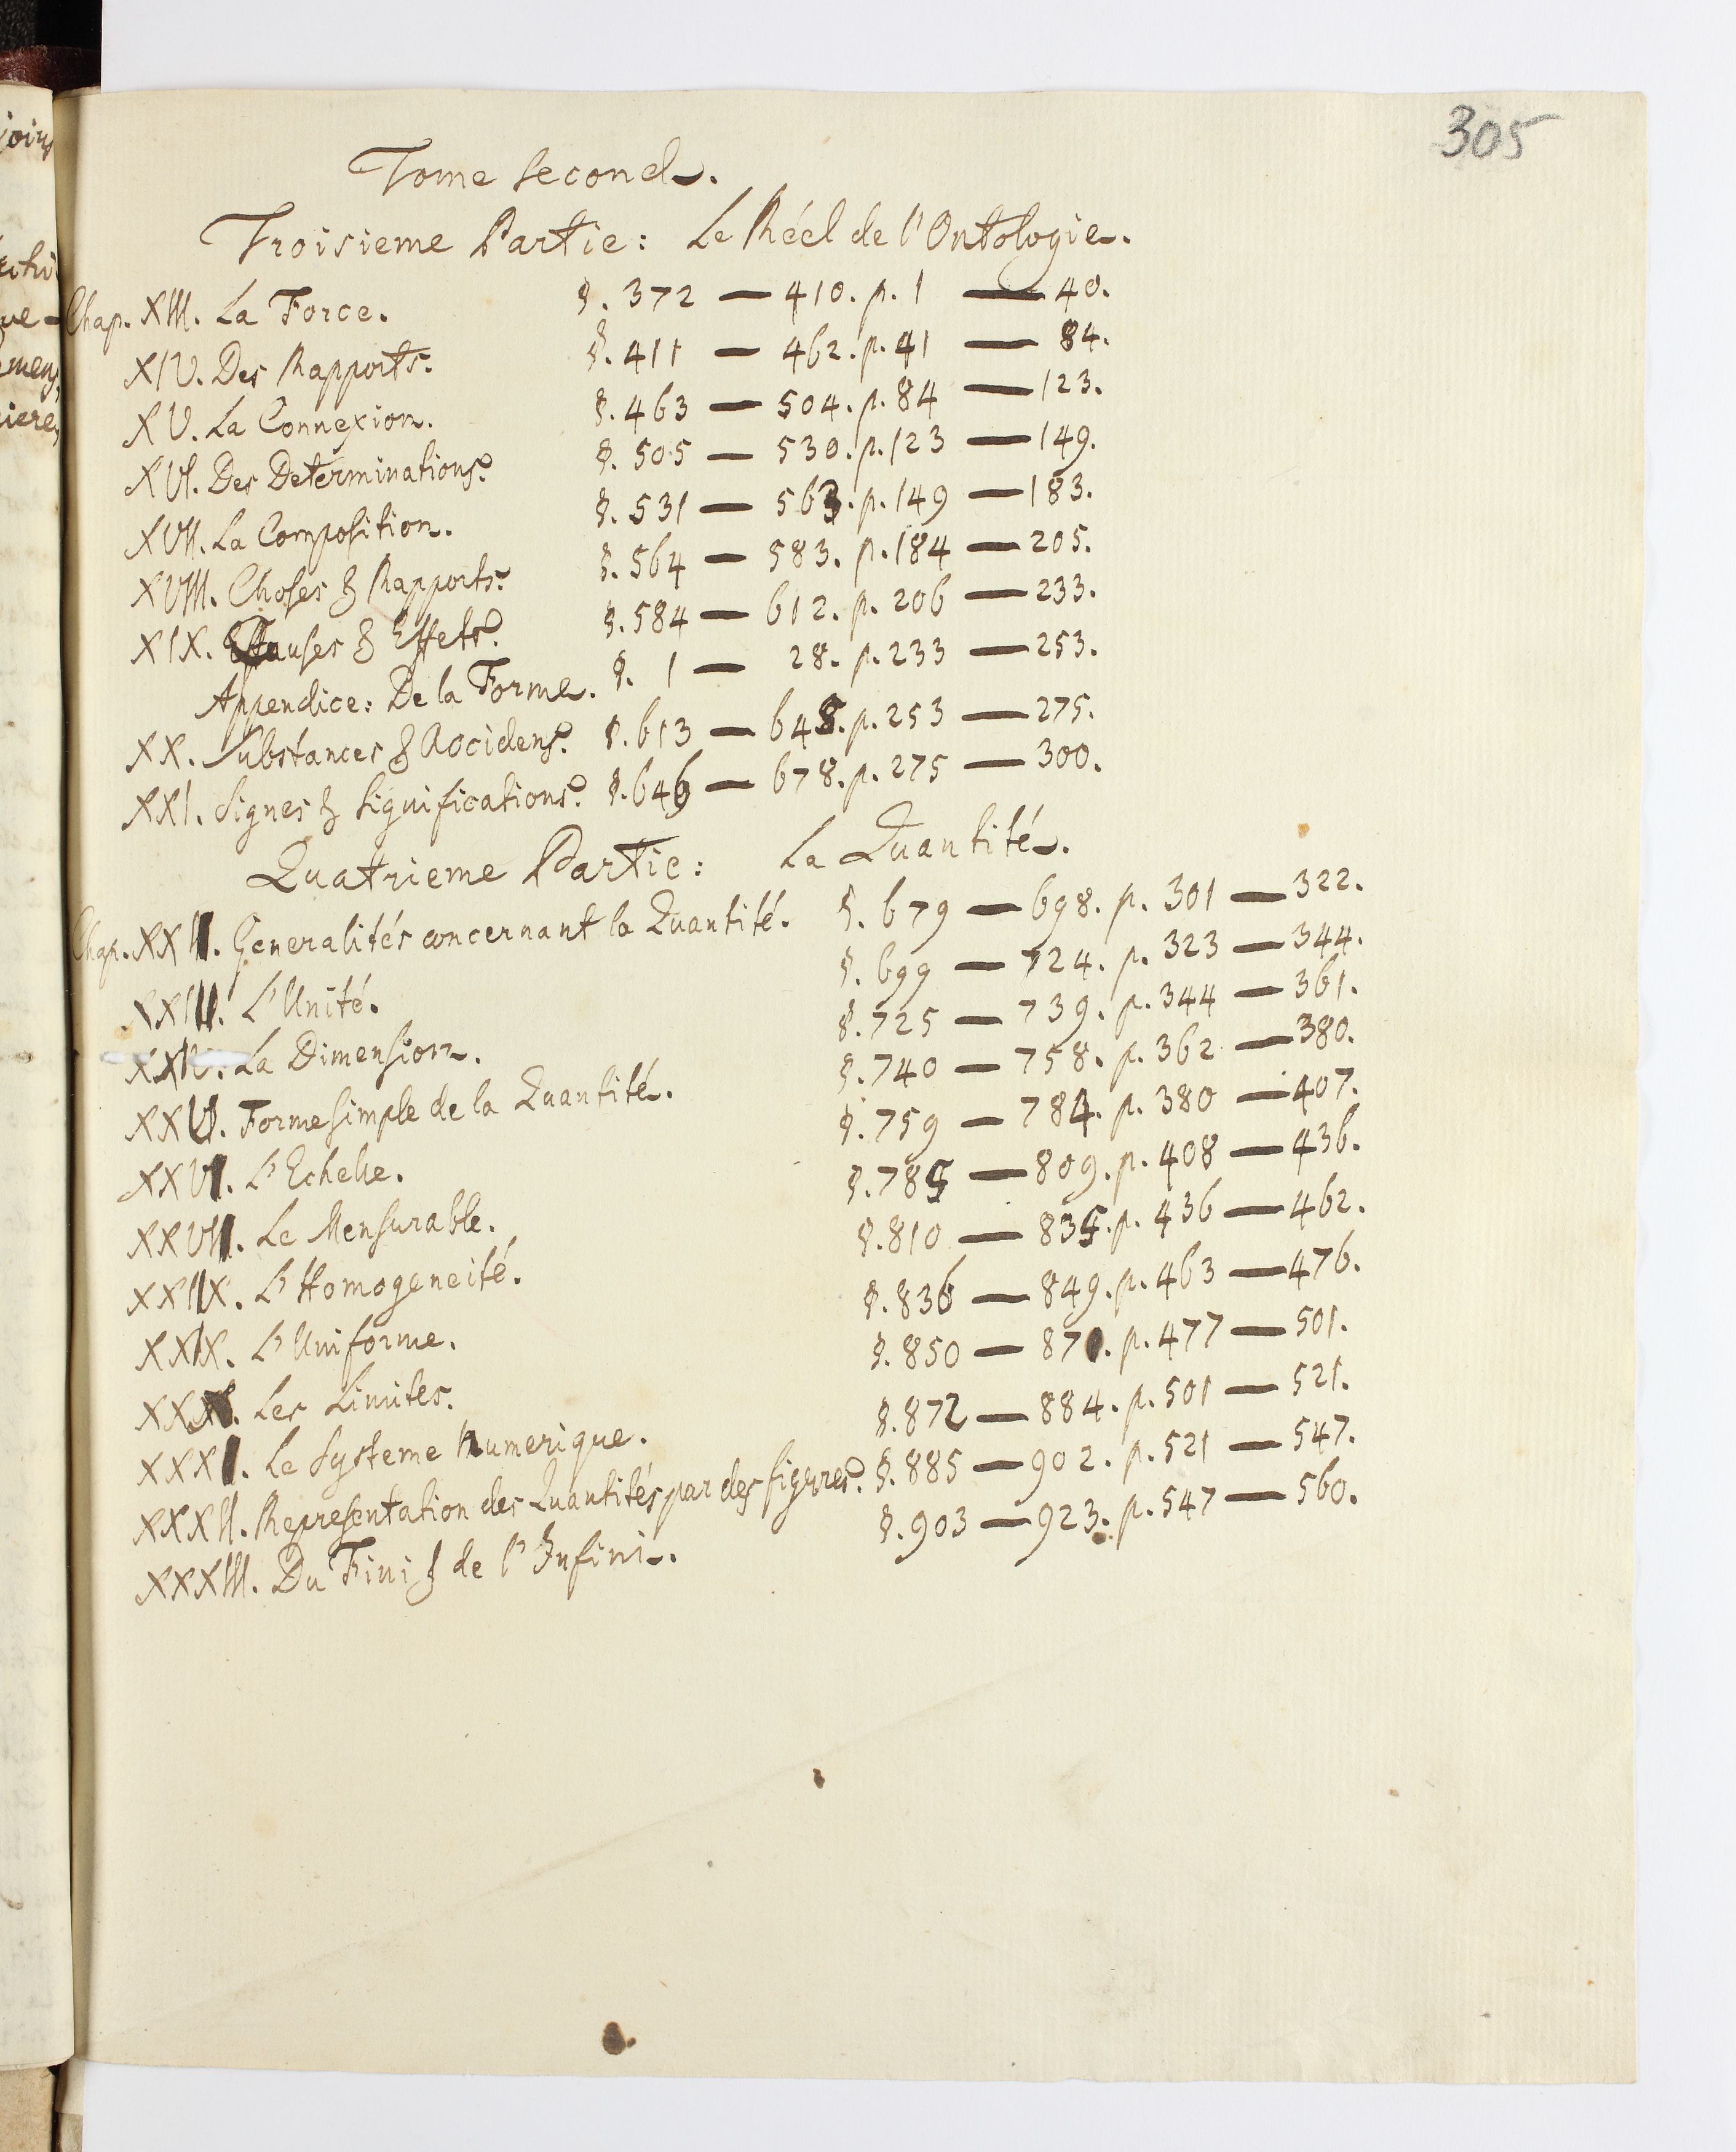 305
Tome second.
Troisieme Partie: Le Réel de l'Ontologie.
Chap. XIII. La Force. §. 372 — 410. p. 1 — 40.
XIV. Des Rapports. §. 411 — 462. p. 41 — 84.
XV. La Connexion. §. 463 — 504. p. 84 — 123.
XVI. Des Determinations. §. 505 — 530. p. 123 — 149.
XVII. La Composition. §. 531 — 563. p. 149 — 183.
XVIII. Choses & Rapports. §. 564 — 583. p. 184 — 205.
XIX. Causes & Effets. §. 584 — 612. p. 206 — 233.
Appendice: De la Forme. §. 1 — 28. p. 233 — 253.
XX. Substances & Accidens. §. 613 — 645. p. 253 — 275.
XXI. Signes & Significations. §. 646 — 678. p. 275 — 300.
Quatrieme Partie: La Quantité.
Chap. XXII. Generalités concernant la Quantité. §. 679 — 698. p. 301 — 322.
XXIII. L'Unité. §. 699 — 724. p. 323 — 344.
XXIV. La Dimension. §. 725 — 739. p. 344 — 361.
XXV. Forme simple de la Quantité. §. 740 — 758. p. 362 — 380.
XXVI. L'Echelle. §. 759 — 784. p. 380 — 407.
XXVII. Le Mensurable. §. 785 — 809. p. 408 — 436.
XXIIX. L'Homogeneité. §. 810 — 835. p. 436 — 462.
XXIX. L'Uniforme. §. 836 — 849. p. 463 — 476.
XXX. Les Limites. §. 850 — 871. p. 477 — 501.
XXXI. Le Systeme numerique. §. 872 — 884. p. 501 — 521.
XXXII. Representation des Quantités par des figures. §. 885 — 902. p. 521 — 547.
XXXIII. Du Fini & de l'Infini. §. 903 — 923. p. 547 — 560.